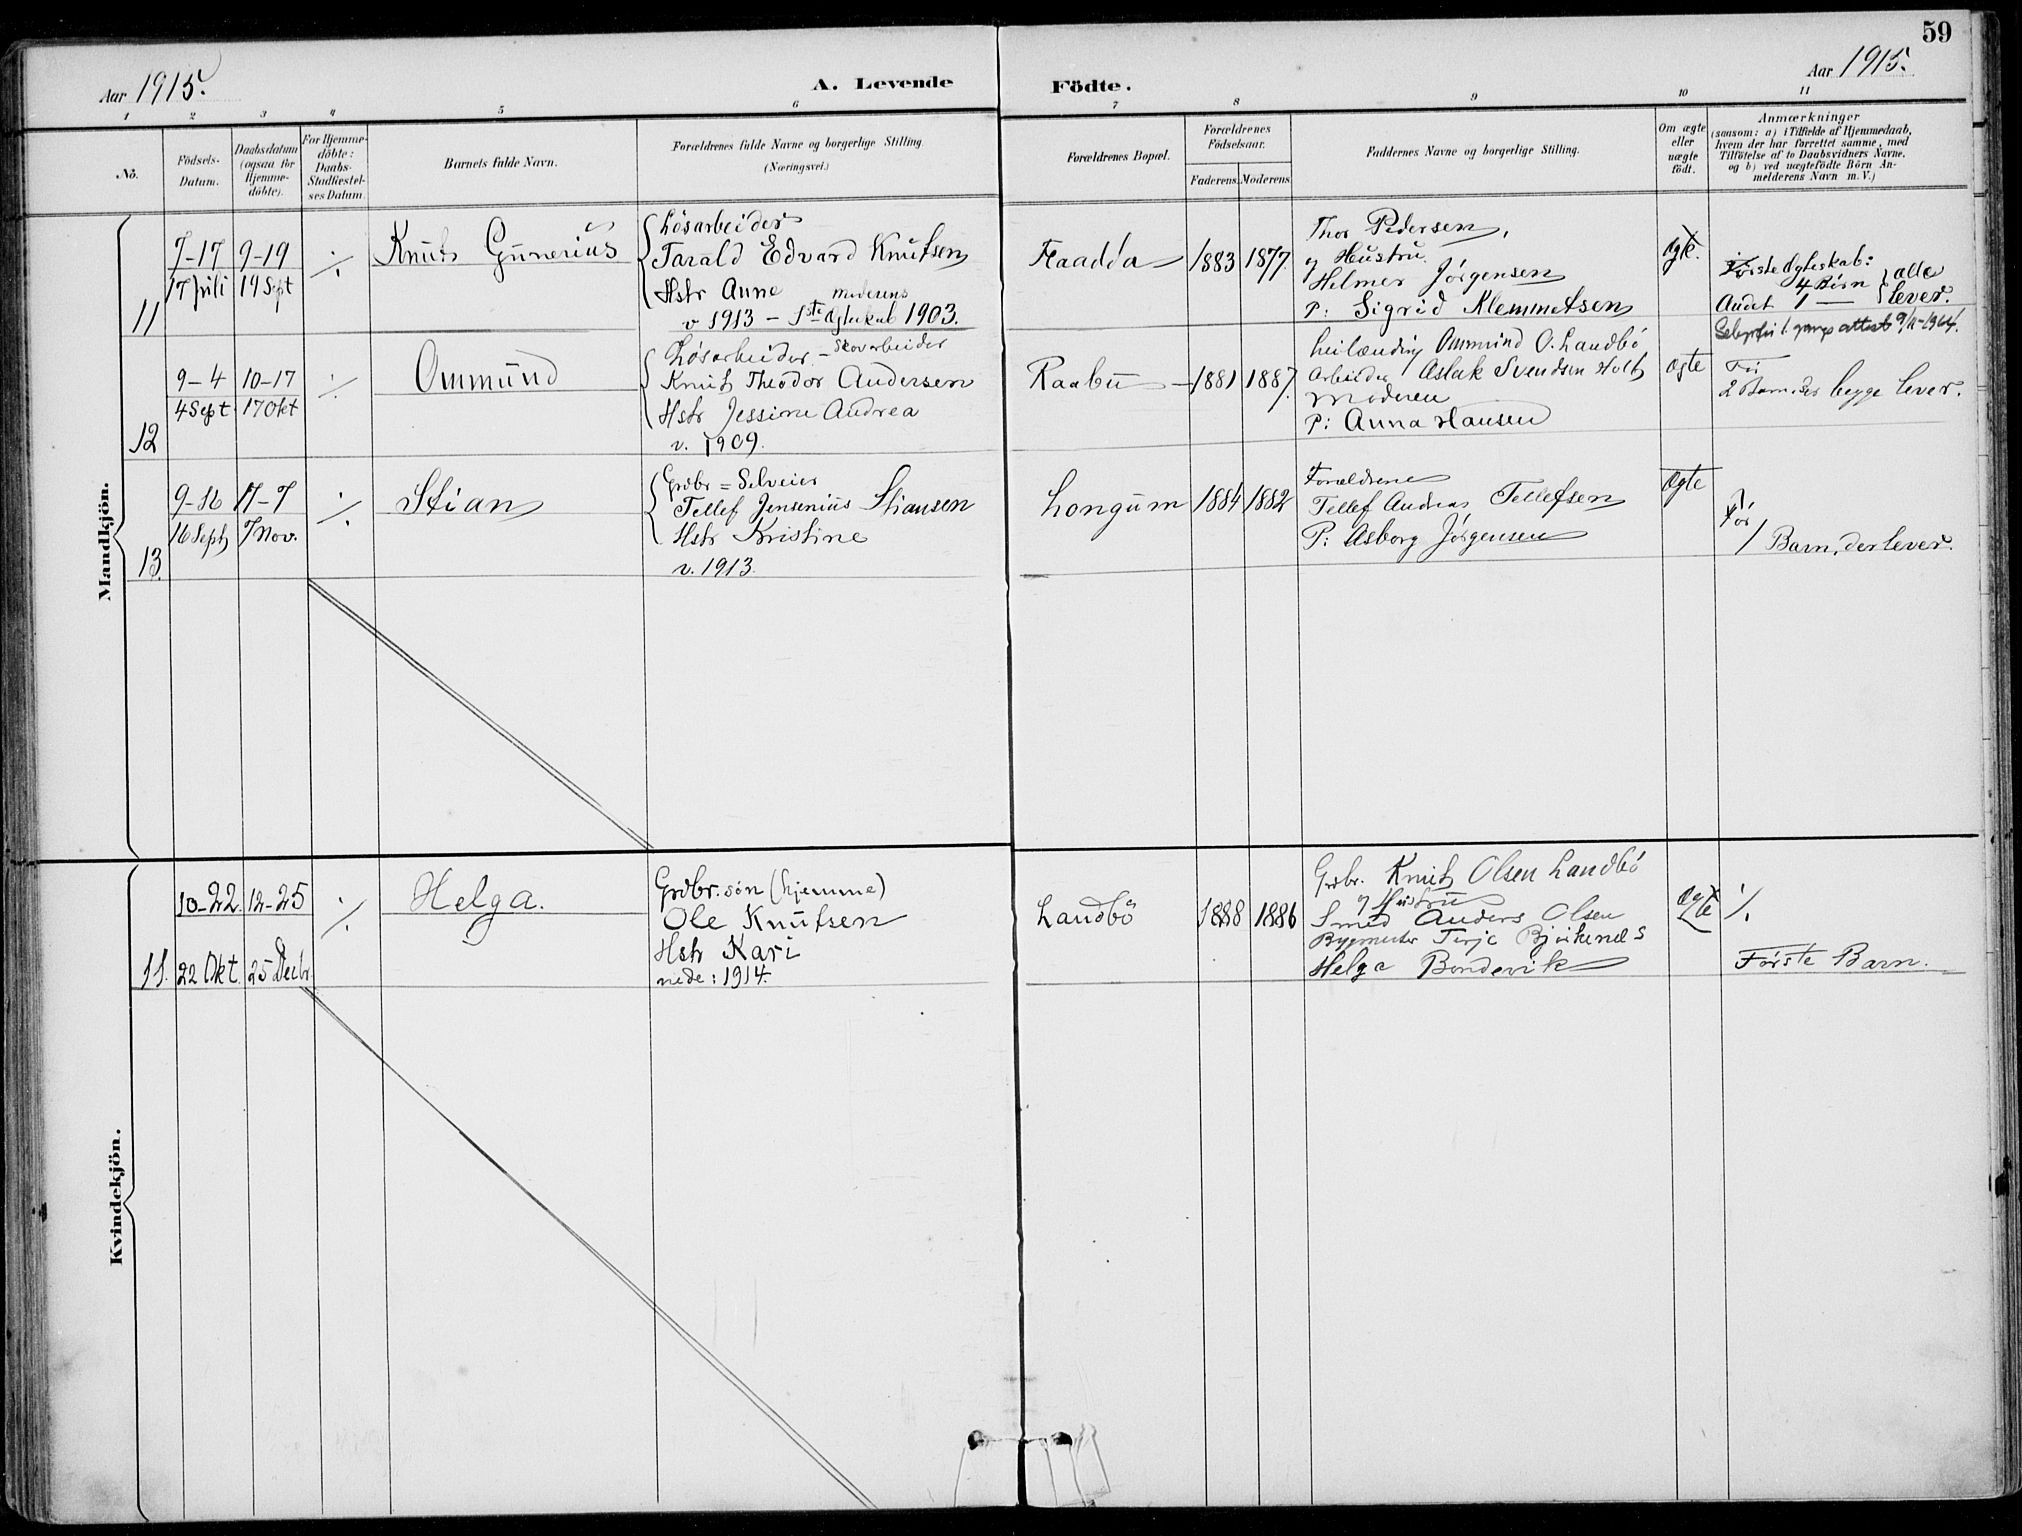 59
Aar 1915.
A. Levende
Födte.
Aar 1915.
1 2 3 4 5 6 7 8 9 10 11
No.
Födsels-
Datum.
Daabsdatum
(ogsaa for
Hjemme-
döbte).
For Hjemme-
döbte:
Daabs-
Stadfæstel-
ses Datum
Barnets fulde Navn.
Forældrenes fulde Navne og borgerlige Stilling.
(Næringsvei.)
Forældrenes Bopæl.
Forældrenes
Födselsaar.
Faderens.
Moderens
Faddernes Navne og borgerlige Stilling.
Om ægte
eller
uægte
födt.
Anmærkninger
(saasom: a) i Tilfælde af Hjemmedaab,
hvem der har forrettet samme, med
Tilföielse af to Daabsvidners Navne,
og b) ved uægtefödte Börn An-
melderens Navn m. V.)
Mandkjön.
11
7-17
17 Juli
9-19
19 Sept
./.
Knut Gunerius
Løsarbeider
Tarald Edvard Knutsen
Hstr Anne
v 1913 - 1ste moderens Ægteskab 1903.
Raadda
1883
1877
Thor Pedersen,
og Hustru.
Helmer Jørgensen
P: Sigrid Klemmetsen
ægte.
Første Ægteskab:
4 Børn
Andet 1 —
alle
lever.
12
9-4
4 Sept
10-17
17 Okt
./.
Ommund
Løsarbeider - Skovarbeider
Knut Theodor Andersen
Hstr Jessine Andrea
v. 1909.
Raabu
1881
1887.
Ommund O. Landbø
Arbeider Aslak Svendsen Holt
Moderen
P: Anna Hansen
ægte
Før
2 Børn, der begge lever.
13.
9-16
16 Sept
11-7
7 Nov.
./.
Stian
Grdbr = Selveier
Tellef Jensenius Stiansen
Hstr Kristine
v. 1913
Longum
1884
1882
Forældrene
Tellef Andreas Tellefsen
P: Asborg Jørgensen
ægte
Før
1 Barn, der lever.
Kvindekjön.
11.
10-22
22 Okt.
12-25
25 Decbr
./.
Helga.
Grdbr. søn (hjemme)
Ole Knutsen
Hstr Kari
viede: 1914.
Landbø
1888
1886
Grdbr. Knut Olsen Landbø
og Hustru
Smed Anders Olsen
Bygmester Terje Bjørkenes
Helga Bondevik
ægte
./.
Første Barn.